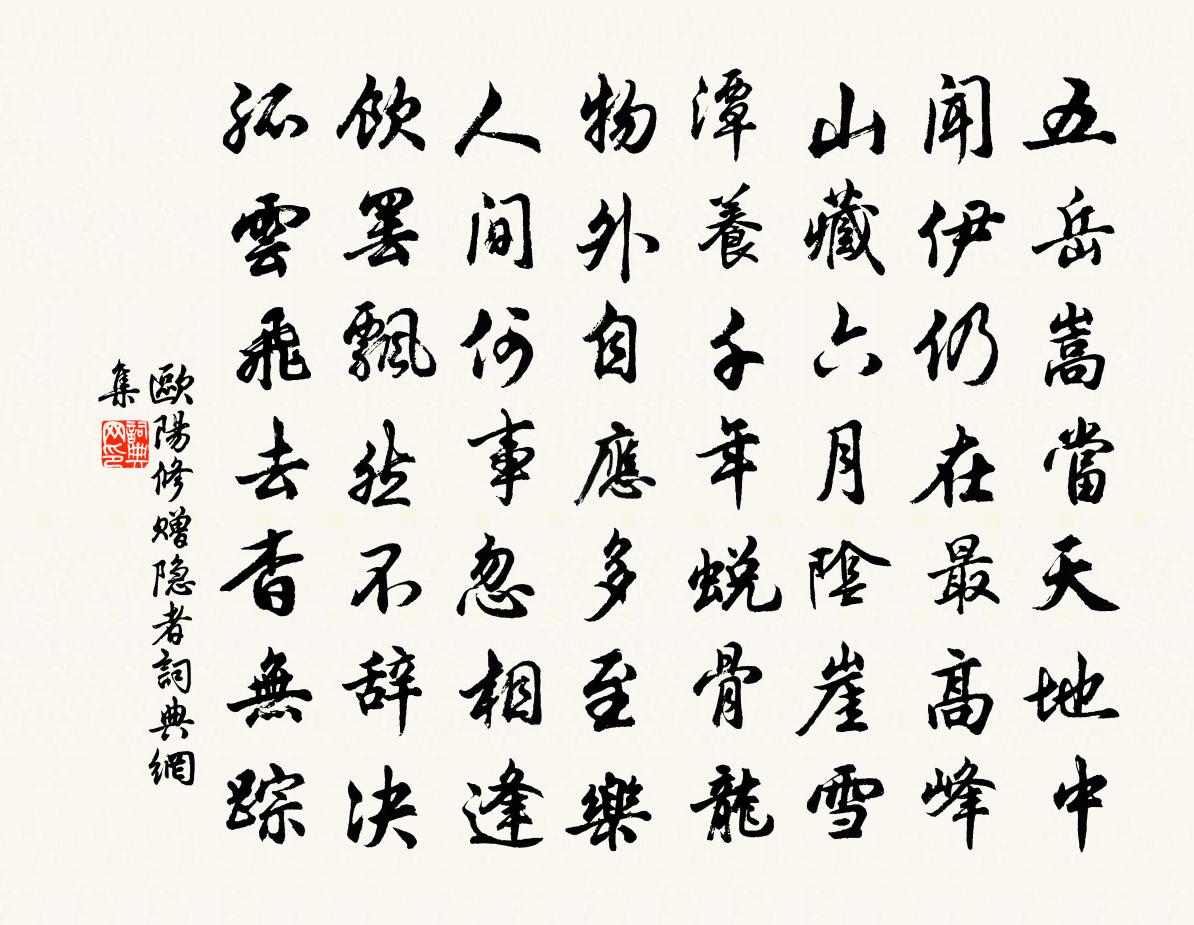 五岳嵩當天地中
聞伊仍在最高峰
山藏六月陰崖雪
潭養千年蛻骨龍
物外自應多至樂
人间何事忽相逢
飲罢飄然不辞决
孤雲飛去杳無踪
歐陽修赠隐者詞典網
集
詞典
网印